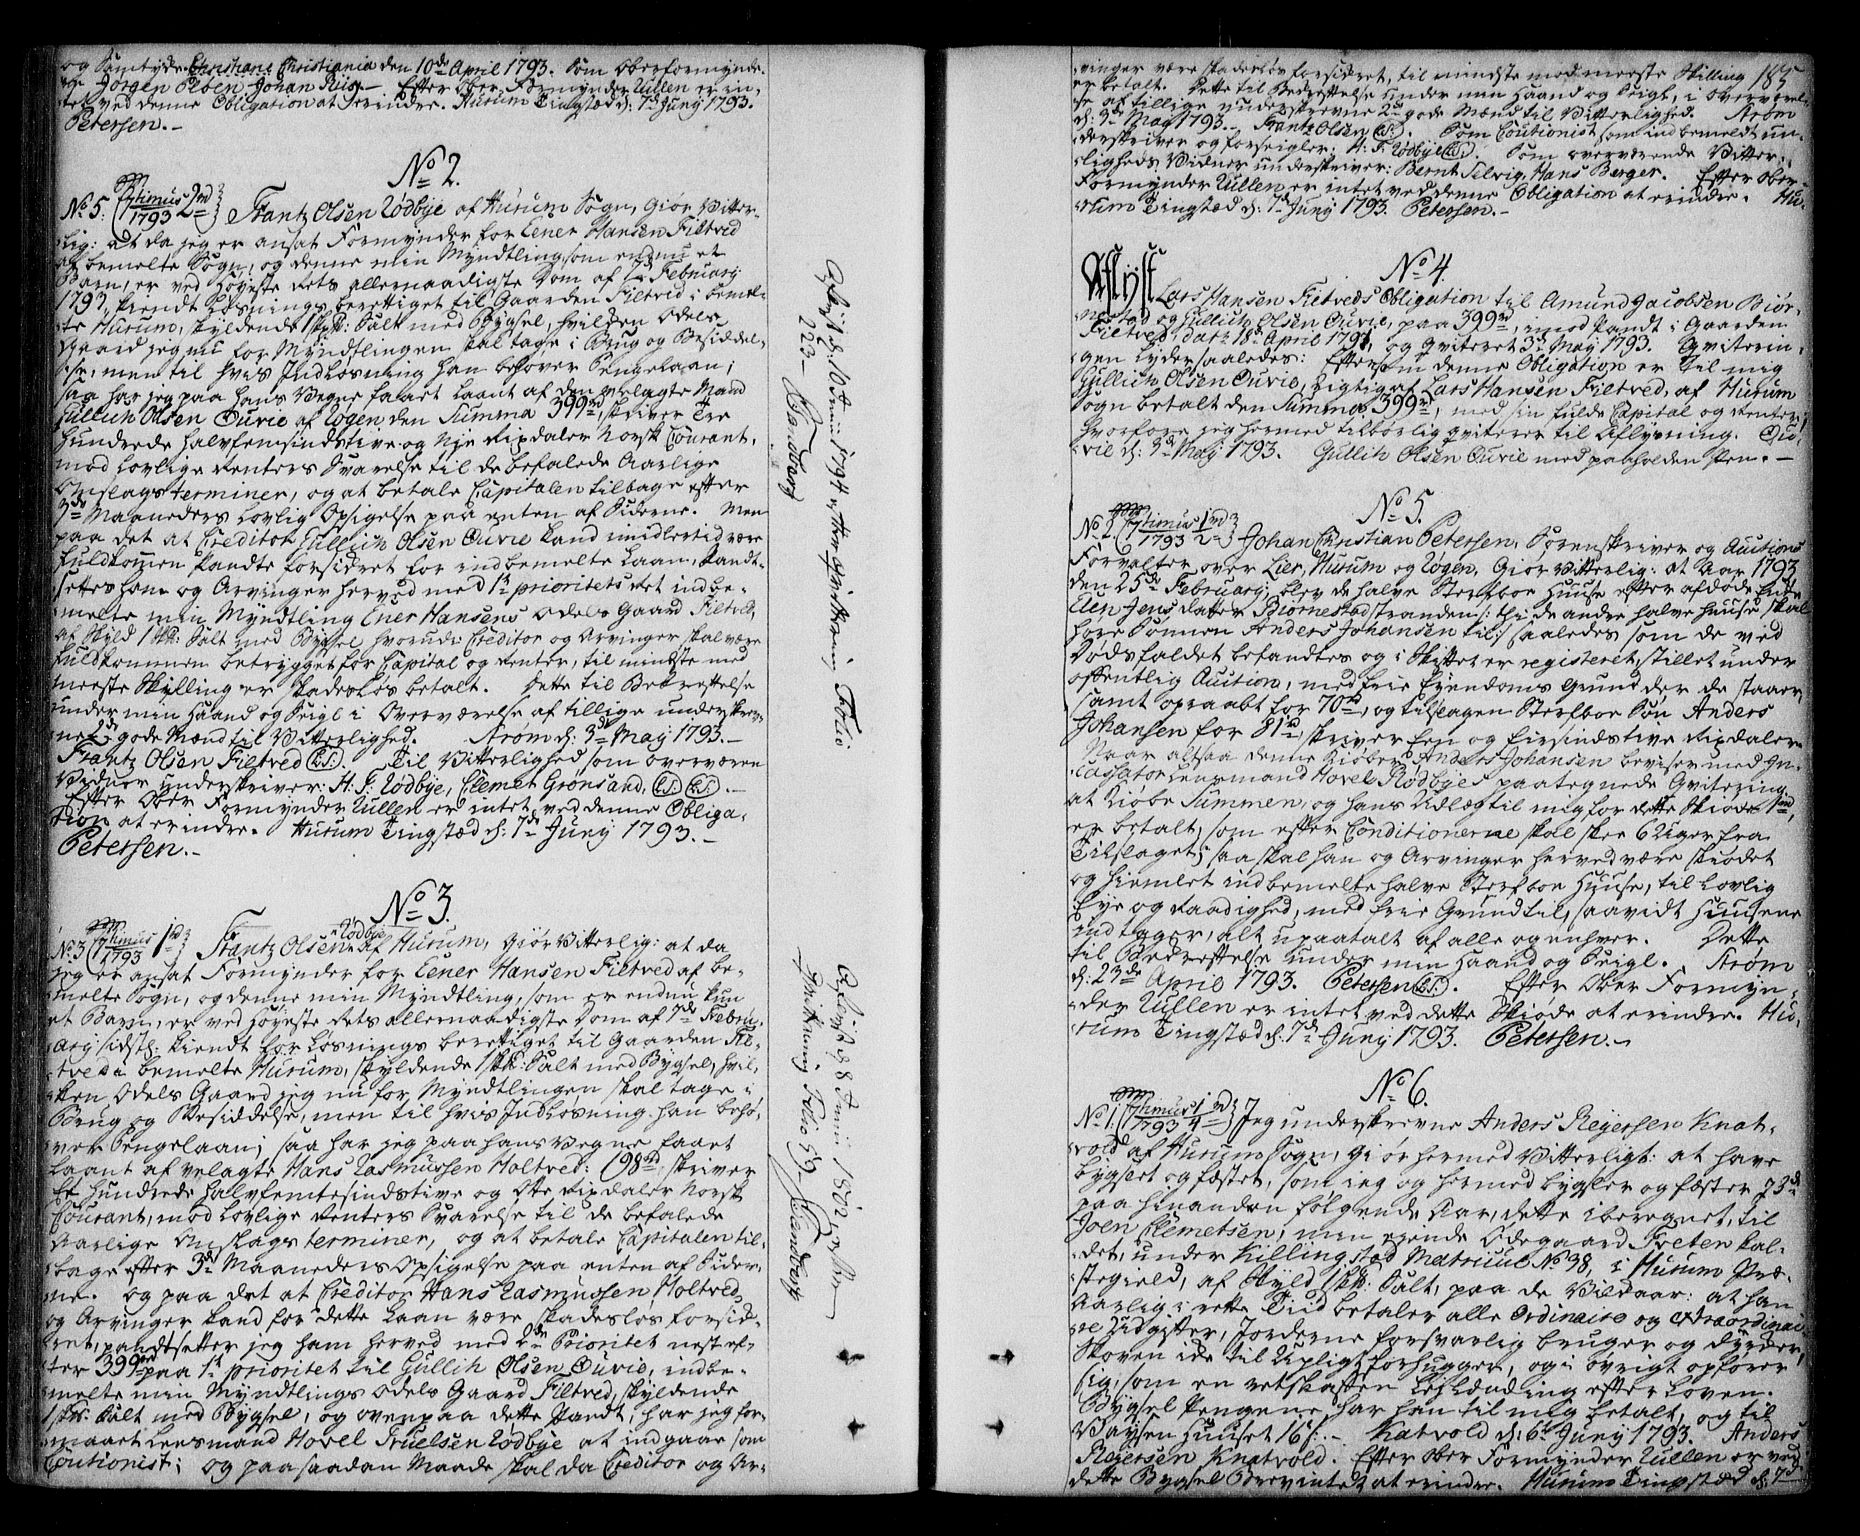 og Samtyde. Christiane Christiania den 10de April 1793. Som Oberformynde-
re Jørgen Olsen Johan Riis.- Efter Ober Formynder Rullen er in-
tet ved denne Obligation at erindre. Hurum Tingstæd d: 7de Juny 1793.
Petersen.-
No 2.
No 5. 7timus 1793 2rd Frantz Olsen Rødbye af Hurum Sogn, Giør Vitter-
lig: at da jeg er ansat Formynder for Eener Hansen Filtved
af bemelte Sogn, og denne min Myndtling, som endnu et
Barn, er ved Høyeste Rets allernaadigste Dom af 7de February
1793, kiendt Løsnings berettiget til Gaarden Filtved i bemel-
te Hurum, skyldende 1 skp: Salt med Bygsel, hvilken Odels
Gaard jeg nu for Myndtlingen skal tage i Brug og Besiddel-
se, men til hvis Indløsning han behøver Pengelaan;
saa har jeg paa hans Vegne faaet laant af den velagte Mand
Gullich Olsen Ourie af Røgen den Summa 399rd, skriver Tre
Hundrede halvfemsindstive og Nje Rixdaler Norsk Courant,
mod lovlige Renters Svarelse til de befalede Aarlige
Omslags terminer, og at betale Capitalen tilbage efter
3de Maaneders lovlig Opsigelse paa enten af Siderne. Men
paa det at Creditor Gullich Olsen Ourie kand imidlertid være
fuldkomen Pandte forsickret for indbemelte Laan, Pandt-
settes ham og Arvinger herved med 1te prioritets Ret indbe-
melte min Myndtling Ener Hansens Odels Gaard Filtved,
af Skyld 1 Skp: Salt med Bygsel hvorudi Creditor og Arvinger skal være
fuldkommen betrygget for Capital og Renter, til mindste med
meeste Skilling er skadesløs betalt. Dette til Bekreftelse
under min Haand og Seigl i Overværelse af tillige underskrev-
ne 2de gode Mænd til Vitterlighed. Strøm d: 3de May 1793.-
Frantz Olsen Filtved (L.S.). Til Vitterlighed som overværen
Vidner underskriver: H. T. Rødbye, Clemet Grønsand, (L.S.) (L.S.).-
Efter Ober Formynder Rullen er intet ved denne Obliga-
tion at erindre. Hurum Tingstæd d: 7de Juny 1793.-
Petersen.-
No 3.
No 3 7timus 1793 1rd Frantz Olsen Rødbye af Hurum, Giør Vitterlig: at da
jeg er ansat Formynder for Eener Hansen Filtved af be-
melte Sogn, og denne min Myndtling, som er endnu kun
et Barn, er ved Høyeste Rets allernaadigste Dom af 7de Febru-
ary sidstl: kiendt for Løsnings berettiget til Gaarden Fil-
tved i bemelte Hurum, skyldende 1 skp: Salt med Bygsel, hvil-
ken Odels Gaard jeg nu for Myndtlingen skal tage i
Brug og Besiddelse, men til hvis Indløsning han behø-
ver Pengelaan; saa har jeg paa hans Vegne faaet
laant af velagte Hans Rasmussen Holtved: 198rd, skriver
Et Hundrede halvfemtesindstive og Otte Rixdaler Norsk
Courant, mod lovlige Renters Svarelse til de befalede
Aarlige Omslags terminer, og at betale Capitalen til-
bage efter 3de Maaneders Opsigelse paa enten af Sider-
ne. og paa det at Creditor Hans Rasmussen Holtved
og Arvinger kand for dette Laan være skadesløs forsik-
ret, pandtsetter jeg ham herved med 2de Prioritet nest ef-
ter 399rd paa 1te prioritet til Gullich Olsen Ourie, indbe-
melte min Myndtlings Odels Gaard Filtved, skyldende
1 skp: Salt med Bygsel, og oven paa dette Pandt, har jeg for-
maaet Leensmand Hovel Truelsen Rødbye at indgaae som
Coutionist; og paa saadan Maade skal da Creditor og Ar-
Aflyst d: 10 Juni 1797 efter qvittering Folio
223- Brandborg
Aflyst d: 8 Juni 1802, efter
qvittering Folio 59- Brandborg
185
vinger være skadesløs forsickret, til mindste med meeste Skilling
er betalt. Dette til Bekreftelse under min Haand og Seigl, i Overværel-
se af tillige underskrevne 2de gode Mænd til Vitterlighed. Strøm
d: 3de May 1793.- Frantz Olsen (L.S.). Som Coutionist som indbemeldt un-
derskriver og forseigler: H. T. Rødbye (L.S.) Som overværende Vitter-
ligheds Vidner underskriver: Bernt Selvig, Hans Berger. Efter Ober
Formynder Rullen er intet ved denne Obligation at erindre. Hu-
rum Tingstæd d: 7de Juny 1793. Petersen.-
No 4.
Aflyst Lars Hansen Filtveds Obligation til Amund Jacobsen Biør-
nestad og Gullich Olsen Ourie, paa 399rd, imod Pandt i Gaarden
Filtved, dat: 18de April 1791, og qviteret 3de May 1793. Qviterin-
gen lyder saaledes: Eftersom denne Obligation er til mig
Gullich Olsen Ourie, rigtig af Lars Hansen Filtved, af Hurum
Sogn betalt den Summa 399rd, med sin fulde Capital og Renter,
hvorfore jeg hermed tilbørlig qviterer til Aflysning. Ou-
rie d: 3de May 1793. Gullich Olsen Ourie med paaholden Pen.-
No 5.
No 2. 7timus 1793 1rd 2 Johan Christian Petersen, Sorenskriver og Auctions
Forvalter over Lier, Hurum og Røgen, Giør Vitterlig: at Aar 1793
den 25de February, blev de halve Sterfboe Huuse efter afdøde Enke
Elen Jens datter Biørnestadstranden /: thi de andre halve huuse, skal
høre Sønnen Anders Johansen til:/ saaledes som de ved
Dødsfaldet befandtes og i Skiftet er registeret, stillet under
offentlig Auction, med frie Eyendoms Grund der de staaer,
samt opraabt for 70rd, og tilslagen Sterfboe Søn Anders
Johansen for 81rd, skriver Een og Firsindstive Rixdaler.
Naar altsaa denne Kiøber Anders Johansen beviser med In-
cassator Lensmand Hovel Rødbyes paategnede Qvitering
at Kiøbe Summen, og hans Udlæg til mig for dette Skiøde 1rd,
er betalt, som efter Conditionerne skall skee 6 Uger fra
Tilslaget; saa skal han og Arvinger herved være skiødet
og hiemlet indbemelte halve Sterfboe Huuse, til lovlig
Eye og Raadighed, med frie Grund til, saavidt Huusene
indtager, alt upaatalt af alle og enhver. Dette
til Bekreftelse under min Haand og Seigl. Strøm
d: 23de April 1793. Petersen (L.S.). Efter Ober Formyn-
der Rullen er intet ved dette Skiøde at erindre. Hu-
rum Tingstæd d: 7de Juny 1793. Petersen.-
No 6.
No 1. 7timus 1793 1rd 4 Jeg underskrevne Anders Reyersen Knat-
vold af Hurums Sogn, Giør hermed Vitterligt: at have
bygslet og fæstet, som jeg og hermed bygsler og fæster 73de
paa hinanden følgende Aar, dette iberegnet, til
Joen Clemetsen, min eyende Ødegaard Treten kal-
det, under Killingstad Matricul No 38, i Hurum Præ-
stegield, af Skyld 1 skp: Salt, paa de Vilkaar: at han
Aarlig i rette Tiid betaler alle Ordinaire og extraordinai-
re Udgifter, Jorderne forsvarlig bruger og dyrker,
Skoven ikke til Upligt forhugger, og i øvrigt opfører
sig, som en retskaffen Leylænding efter Loven.
Bygsel Pengene har han til mig betalt, og til
Vaysen Huuset 16 s.- Knatvold d: 6te Juny 1793. Anders
Reyersen Knatvold. Efter Ober Formynder Rullen er ved
dette Bygsel Brev intet at erindre. Hurum Tingstæd d: 7de